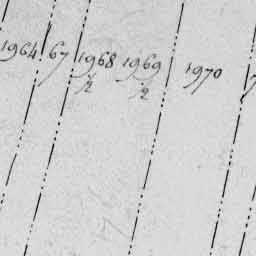 1964. 67 1968 ½ 1969 ½ 1970